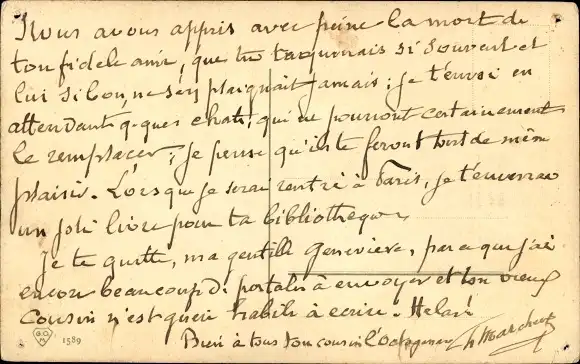 Nous avons appris avec peine la mort de
ton fidele ami, que tu taquinais si souvent et
lui si bon, ne s'en plaignait jamais; je t'envoi en
attendant q-ques chats, qui ne pourront certainement
le remplacer; je pense qu'ils te feront tout de même
plaisir. Lorsque je serai rentré à Paris, je t'enverrai
un joli livre pour ta bibliotheque
Je te quitte, ma gentille Geneviève, parce que j'ai
encore beaucoup de portales à envoyer et ton vieux
Cousin n'est guère habile à ecrire. Helas!
Bien à tous ton cousin l'Octogenaire
1589